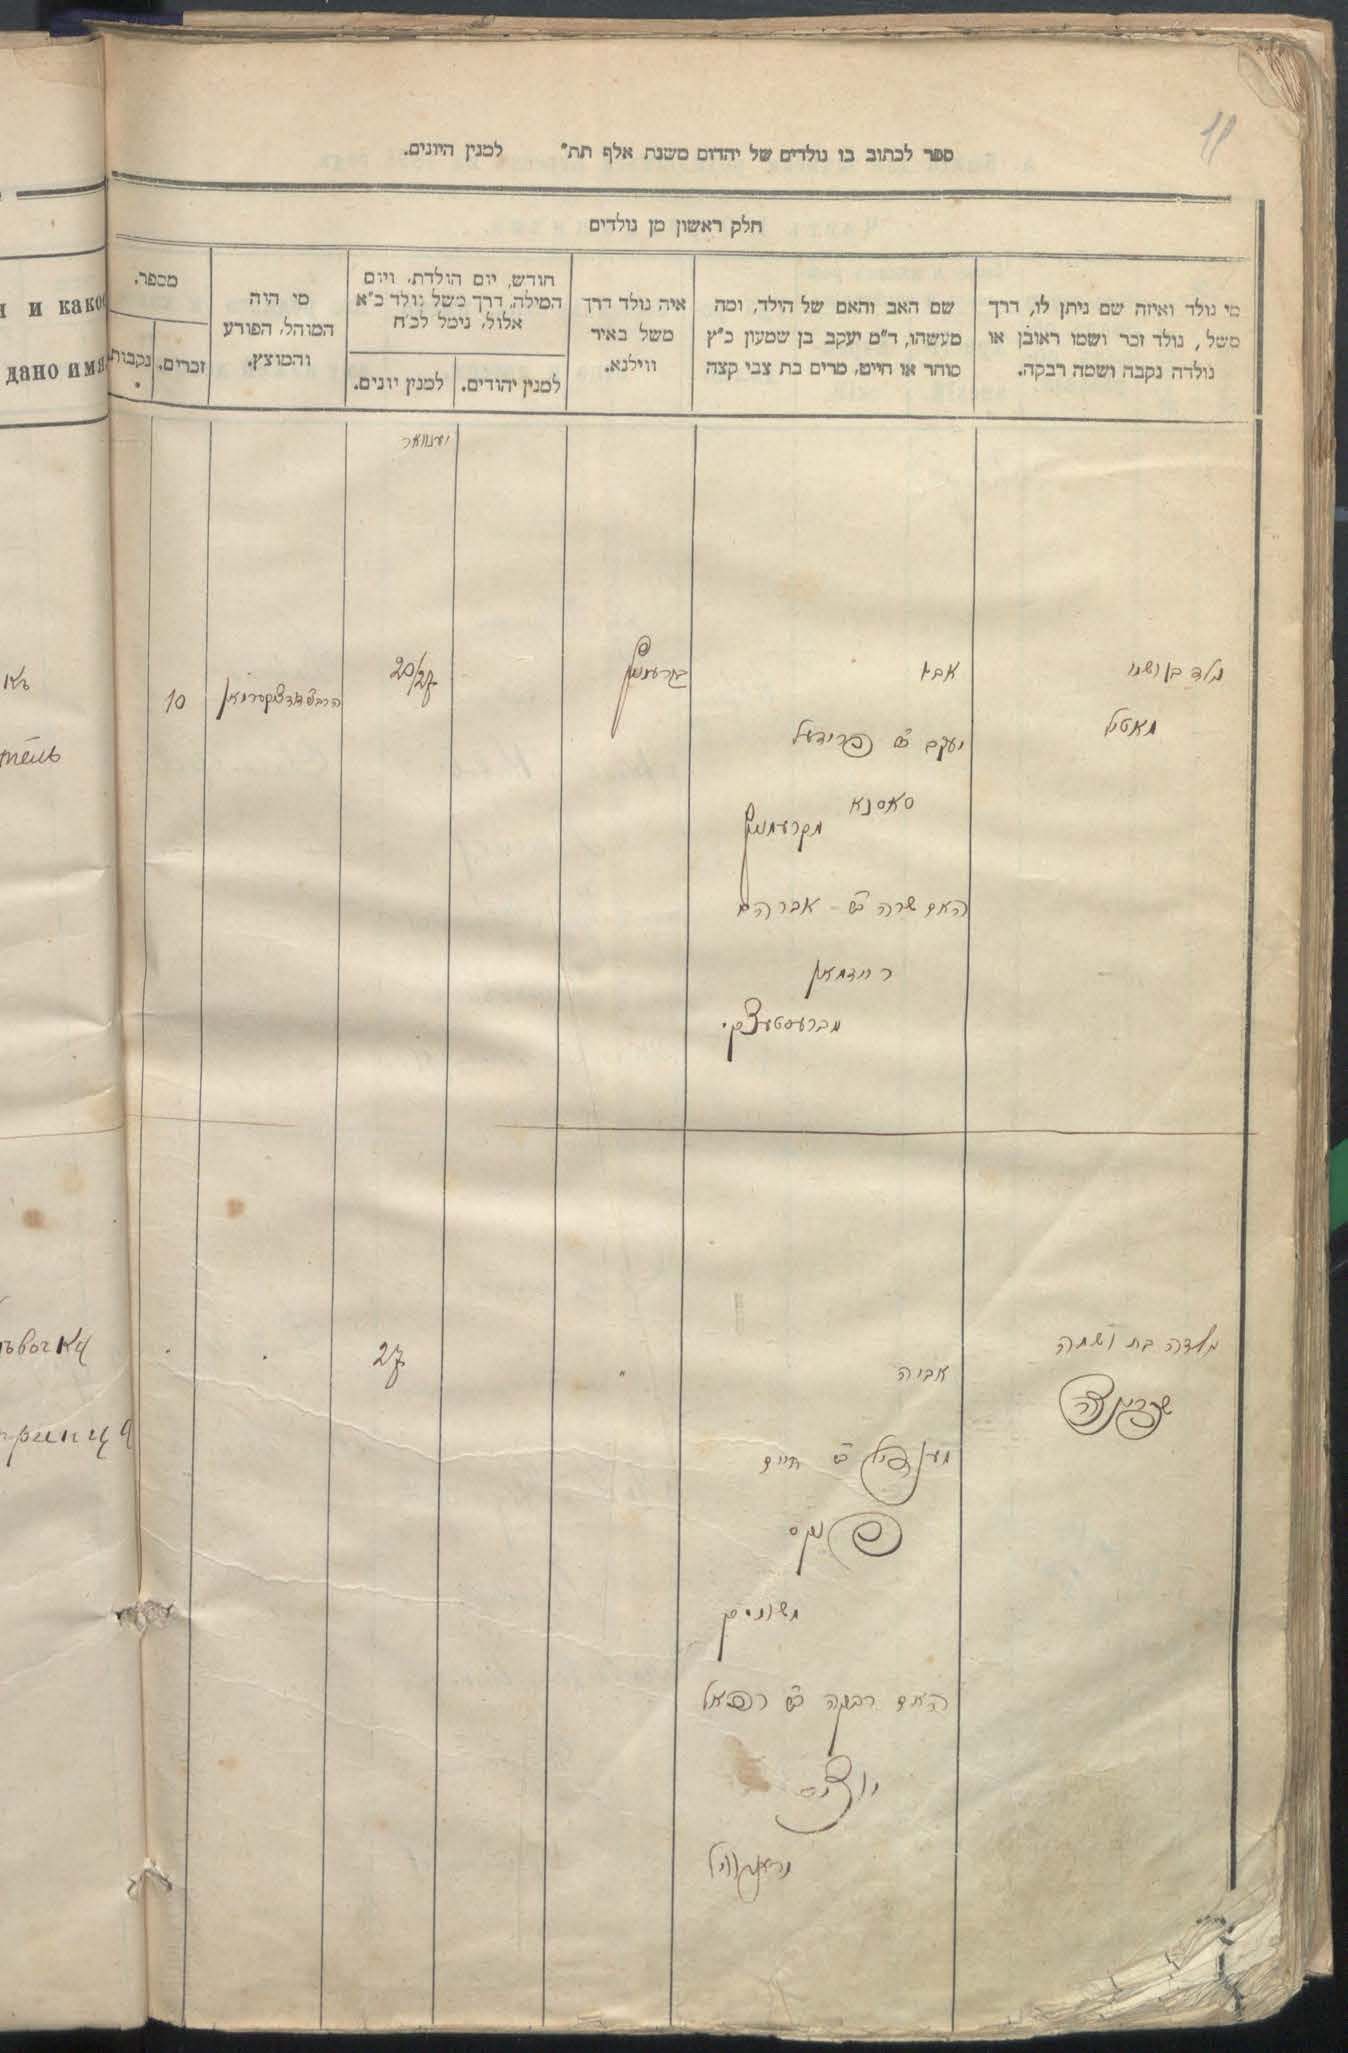 11
ספר לכתוב בו נולדים של יהדום משנת אלף תת״ למנין היונים.
חלק ראשון מן נולדים
מי נולד ואיזה שם ניתן לו, דרך
משל, נולד זכר ושמו ראובן או
נולדה נקבה ושמה רבקה.
שם האב והאם של הילד, ומה
מעשהו, ד״מ יעקב בן שמעון כ״ץ
סוחר או חייט, מרים בת צבי קצה
איה נולד דרך
משל באיר
ווילנא.
חודש, יום הולדת, ויום
המילה, דרך משל נולד כ״א
אלול, נימל לכ״ח
למנין יהודים.
למנין יונים.
מי היה
המוהל, הפורע
והמוצץ.
מספר.
זכרים.
נקבות.
и како
дано имя
יענוואר
נולד בן ושמו
מאטיל
אבא
יעקב ב״ פרידעל
סאסנא
מקרעמניץ
האם שרה ב״ אברהם
ריידמאן
מברעסטעצקי
בקרעמניץ
20/27
10
נולדה בת ושמה
שפרינצה
אביה
מענדיל ב״ חיים
פינקס
משומסק
האם רבקה ב״ רפאל
"
27
тель